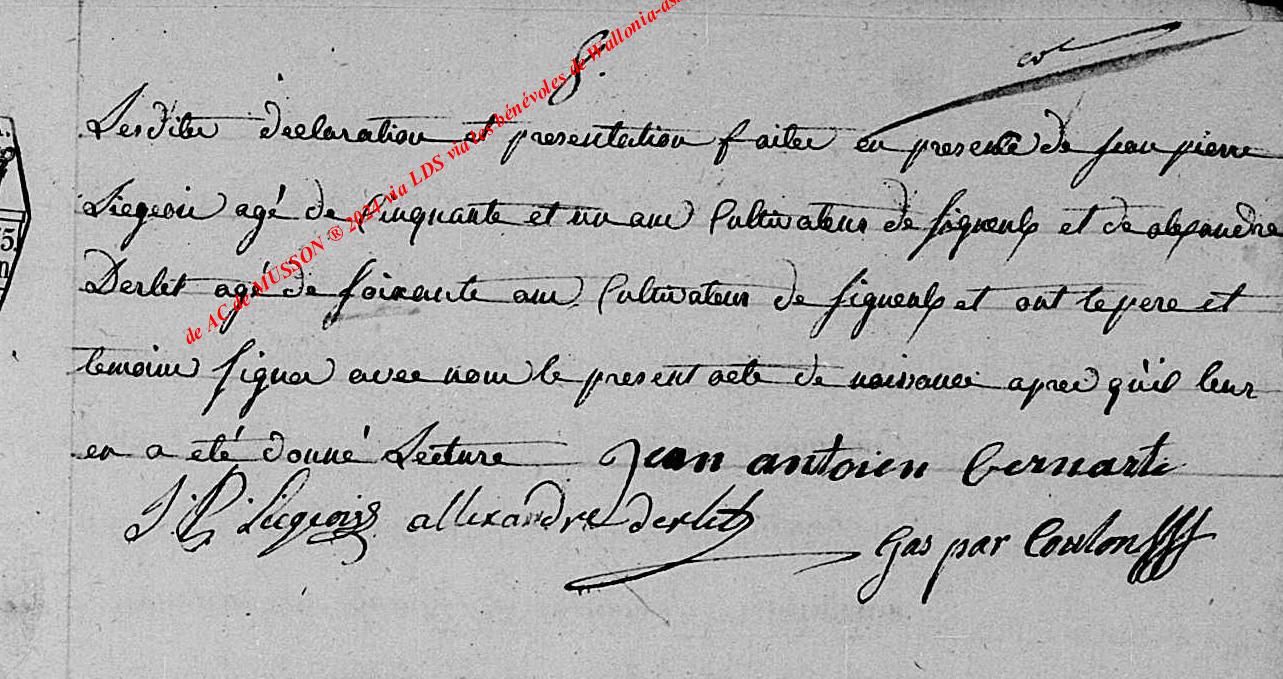 8.
Lesdites declaration et presentation faites en presence de jean pierre
Liegeois agé de cinquante et un ans Cultivateur de signeulx et de alexandre
Derlet agé de soixante ans Cultivateur de signeulx et ont le pere et
temoins signes avec nous le present acte de naissance apres qu'il leur
en a eté donné Lecture jean antoien bernart
J. P. Liegeois allexandre derlet
Gaspar Coulon
de AC de MUSSON ® 2024 via LDS via les bénévoles de Wallonia-as
5.
n